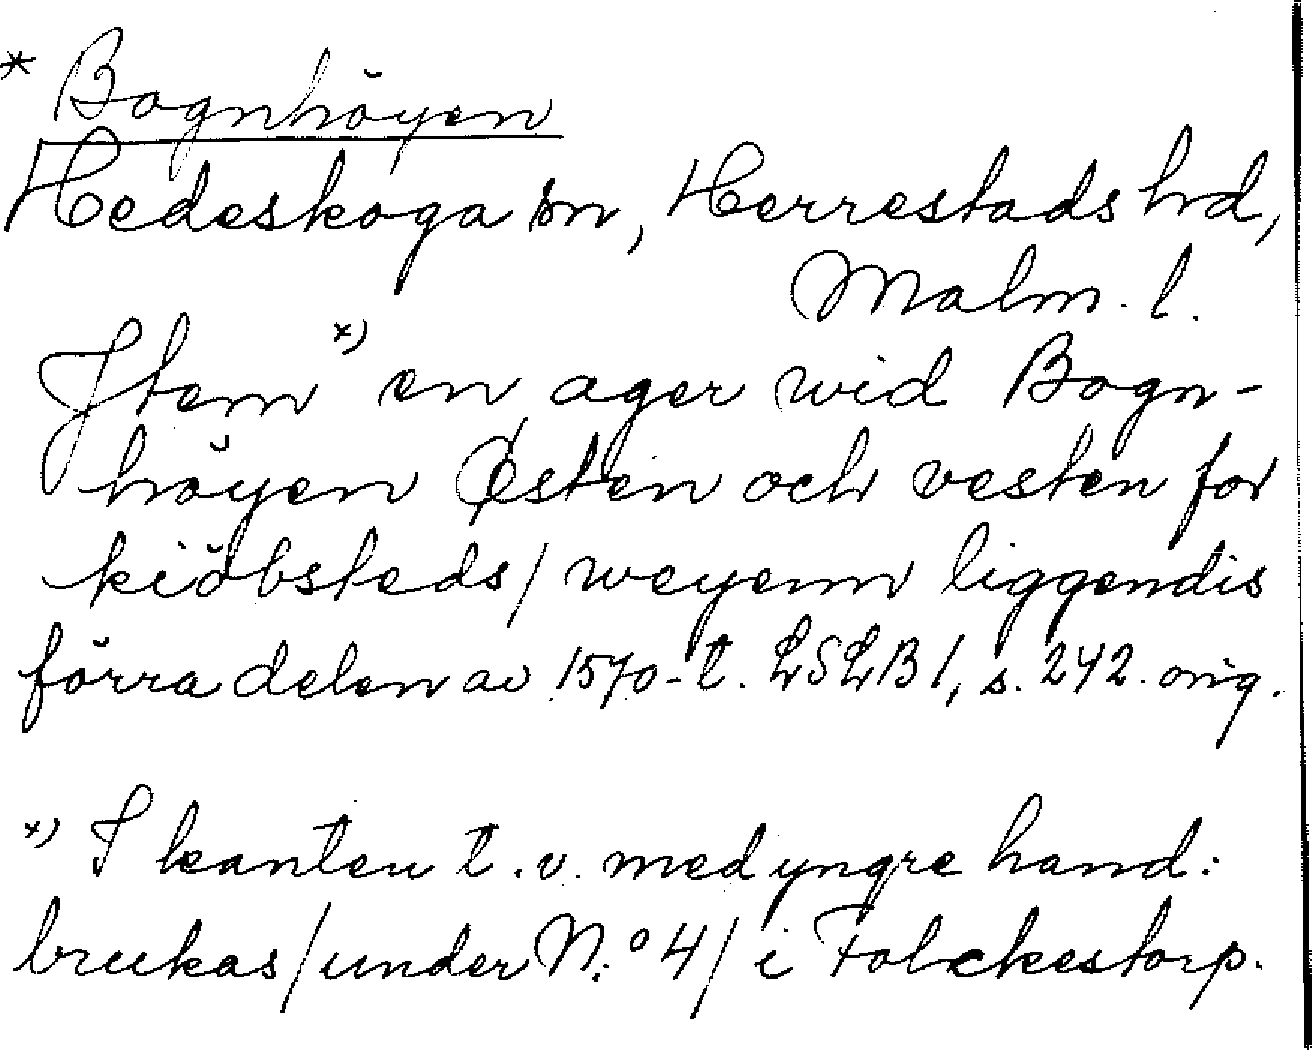 * Bognhöyen
Hedeskoga sn, Herrestads hd,
Malm. l.
Jtem *) en ager wid Bogn-
höyen Østen och vesten for
kiöbsteds/ weyenn liggendis
förra delen av 1570-t. LSLB 1, s. 242. orig.
*) I kanten t.v. med yngre hand:
brukas/under N:o 4/ i Folckestorp.